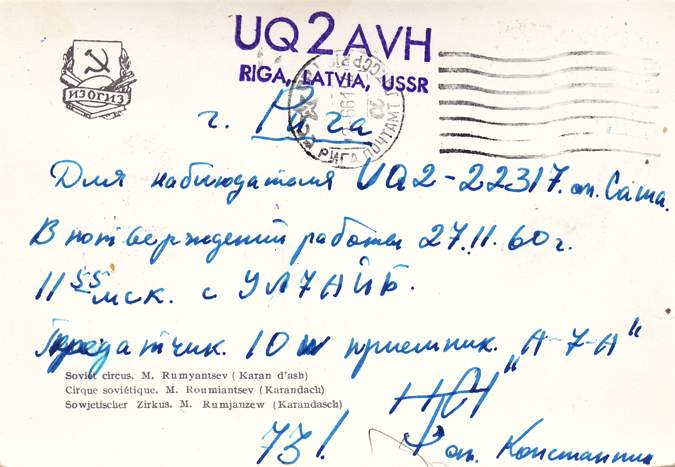 UQ2AVH
RIGA, LATVIA, USSR
ИЗОГИЗ
РИГА ПОЧТАМТ
г. Рига
Для наблюдателя UA2-22317. оп. Саша.
В потверждений работы 27.11.60г.
11 55 мск. с УЛ7АЙБ.
Передатчик. 10 W приемник. "А-7-А"
Soviet circus. M. Rumyantsev (Karan d'ash)
Cirque soviétique. M. Roumiantsev (Karandach)
Sowjetischer Zirkus. M. Rumjanzew (Karandasch)
73!
оп. Константин